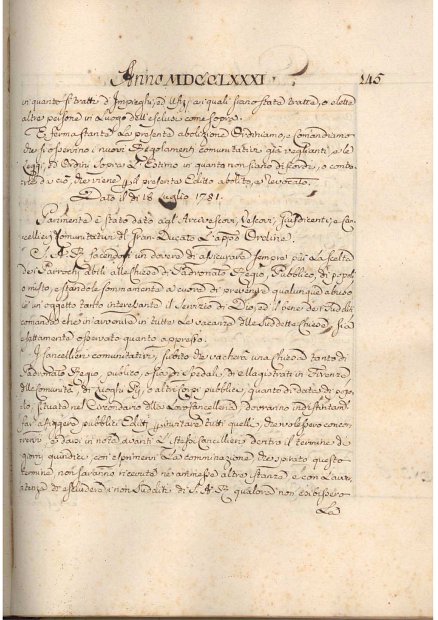 Anno MDCCLXXXI. 145
in quanto si tratti d'Impieghi, ed Ufizi, ai quali siano state tratte, o elette
altre persone in luogo dell'escluse come sopra.
E ferma stante la presente abolizione Ordiniamo, e Comandiamo
che si osservino i nuovi Regolamenti comunitativi già veglianti, e le
Leggi, ed Ordini sopra l'Estimo in quanto non siano discordi, o contra
a ciò, che viene il presente Editto abolito, e revocato.
Dato il dì 18 Luglio 1781.
Parimente è stato dato agl'Arcivescovi, Vescovi, Giusdicenti, e Can-
cellieri Comunitativi del Gran-Ducato l'apposto Ordine.
S. A. R. facendosi un dovere di assicurare sempre più la scelta
dei Parrochi abili alle Chiese di Padronato Regio, Pubblico, di popolo,
o misto, e standole sommamente a cuore di prevenire qualunque abuso
in un oggetto tanto interessante il Servizio di Dio, ed il bene dei Fedeli
comanda che in avvenire in tutte le vacanze delle suddette Chiese sia
esattamente osservato quanto appresso.
I Cancellieri comunitativi, subito che vacherà una Chiesa tanto di
Padronato Regio, pubblico, o sia di Spedali, di Magistrati in Firenze
di Comunità, di Luoghi Pii, o altri corpi pubblici, quanto di data di popo-
lo, situata nel Circondario della loro Cancelleria, dovranno
far affiggere pubblici Editti invitare tutti quelli, che volessero concor-
rervi, a darsi in nota avanti l'istesso Cancelliere dentro il termine di
giorni quindici, con esprimervi la comminazione che spirato questo
termine non saranno ricevute nè ammesse altre istanze, e con l'avver-
tenza di escludere i non Sudditi di S. A. R. qualora non esibissero
La